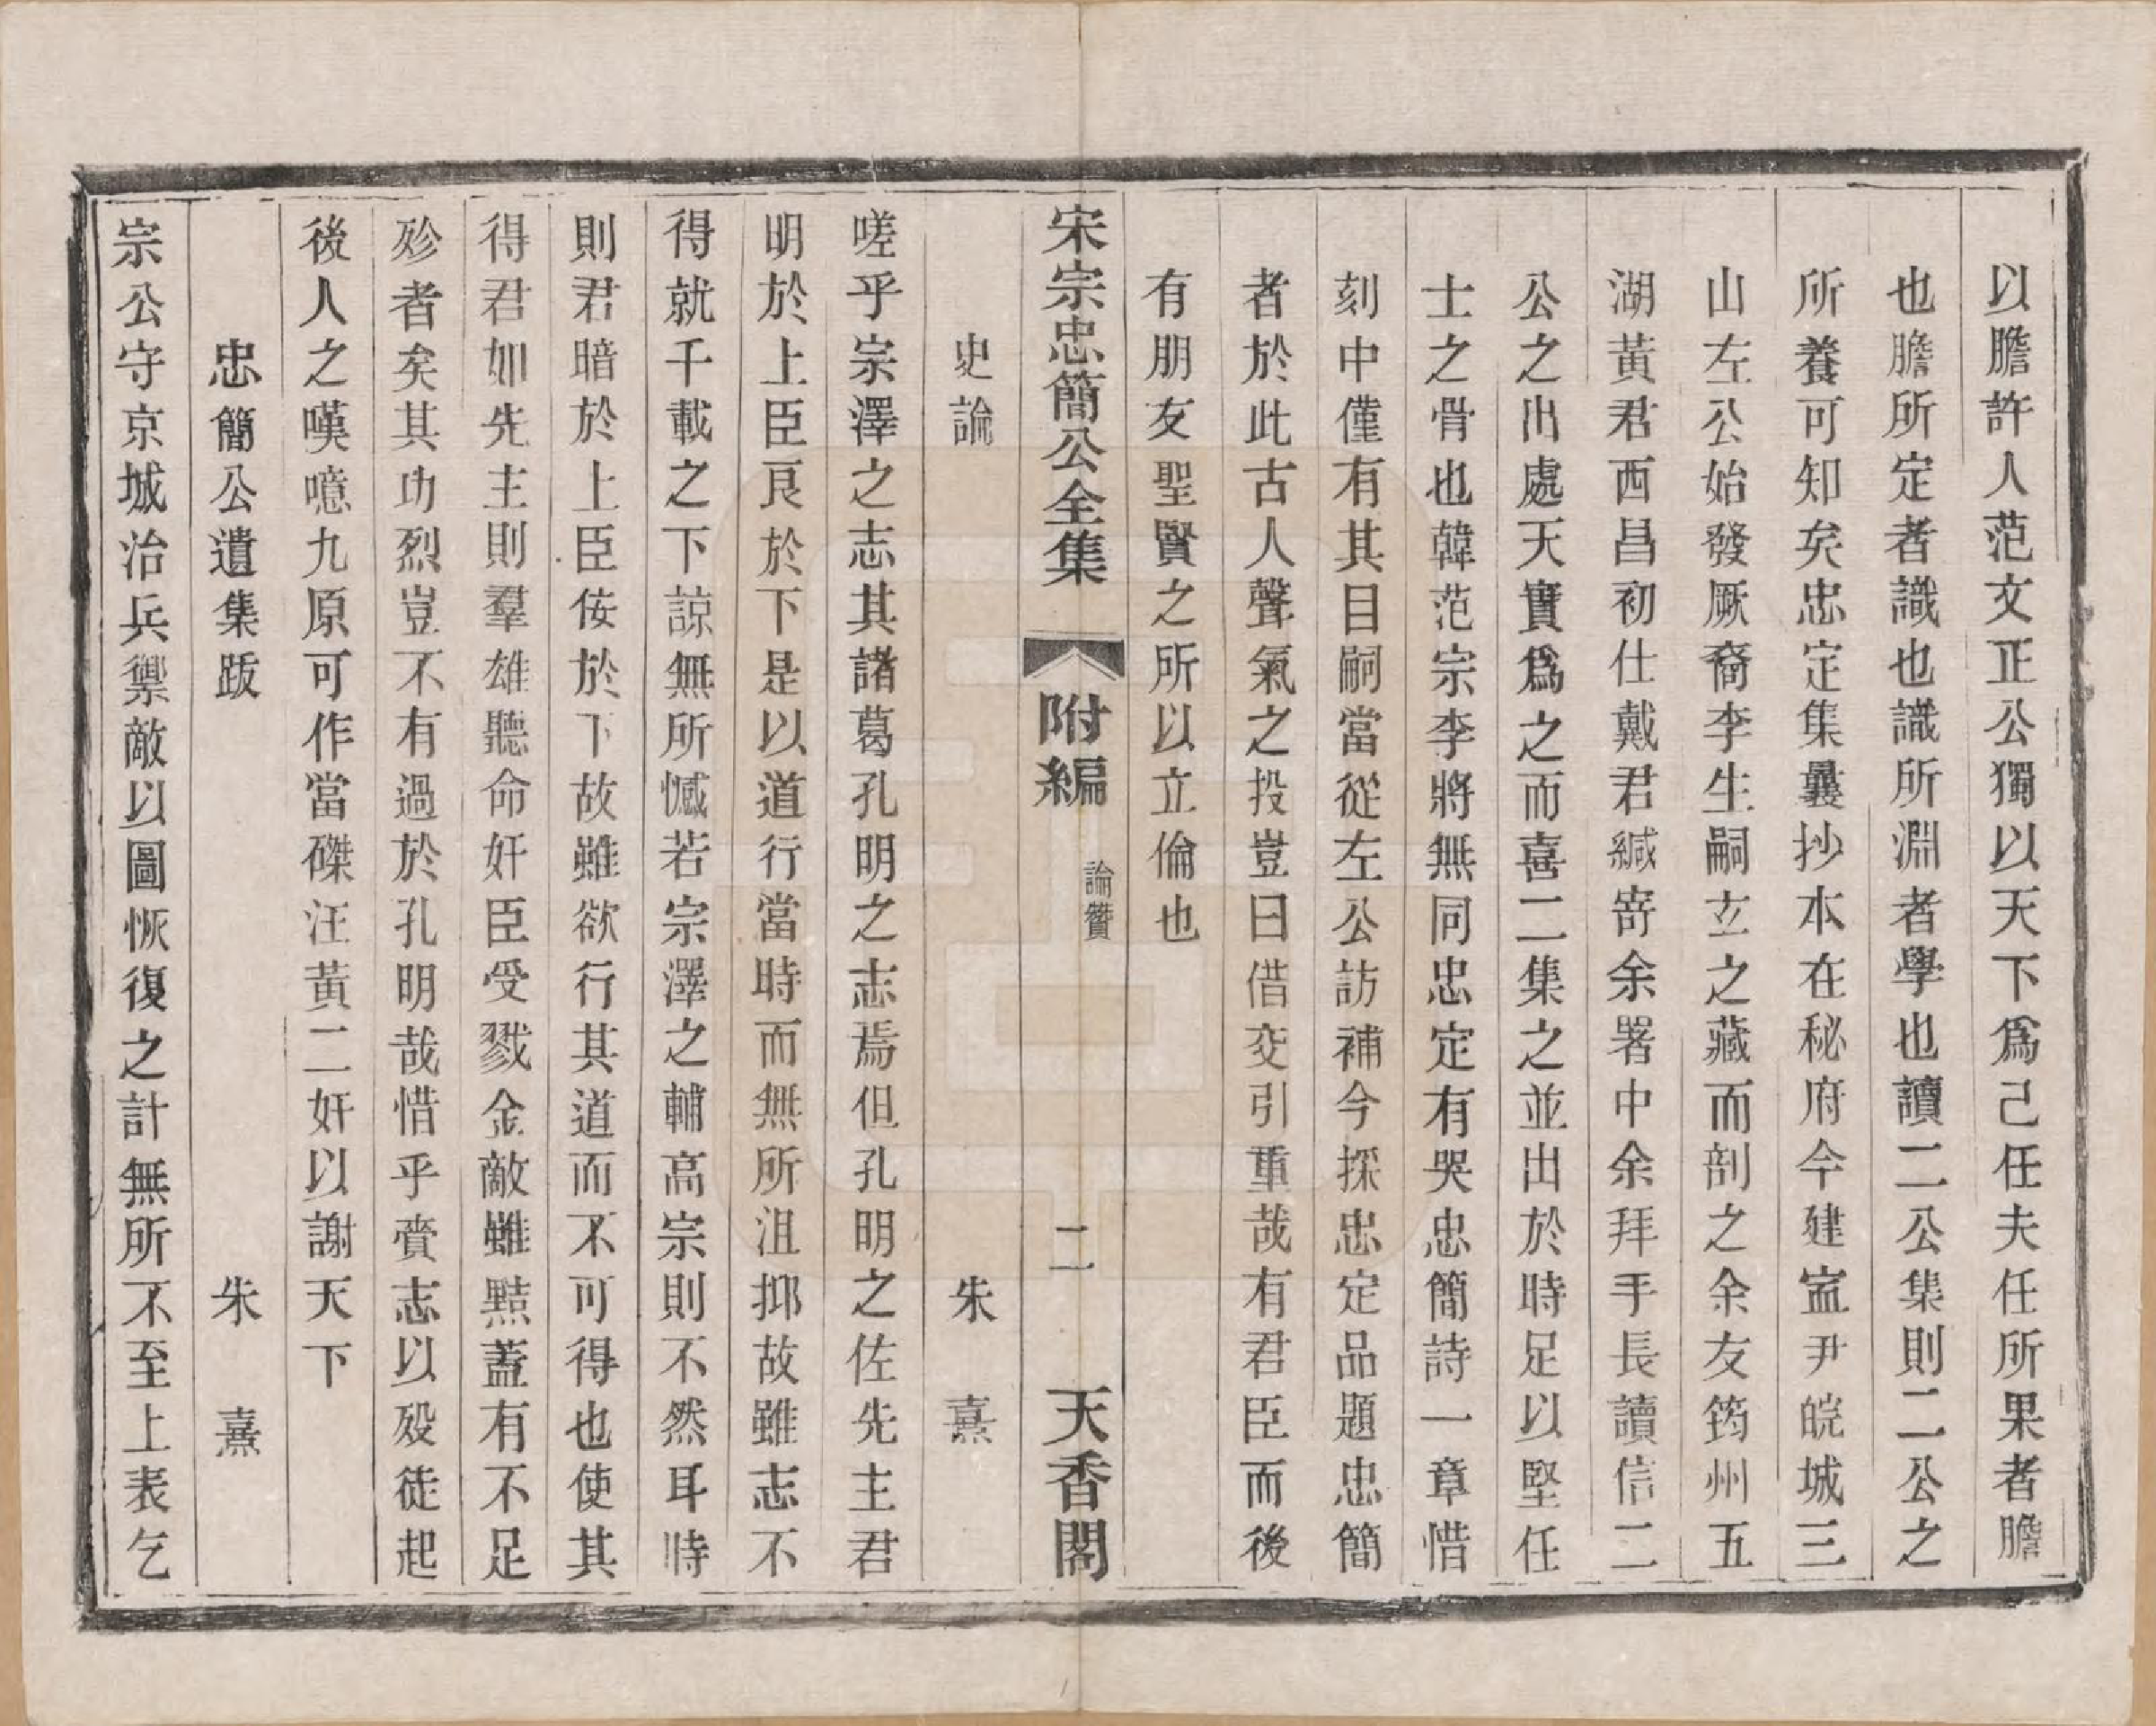 以膽許人范文正公獨以天下爲己任夫任所果者膽
也膽所定者識也識所淵者學也讀二公集則二公之
所養可知矣忠定集曩抄本在秘府今建寍尹皖城三
山左公始發厥裔李生嗣玄之藏而剖之余友筠州五
湖黃君西昌初仕戴君緘寄余署中余拜手長讀信二
公之出處天實爲之而喜二集之並出於時足以堅任
士之骨也韓范宗李將無同忠定有哭忠簡詩一章惜
刻中僅有其目嗣當從左公訪補今採忠定品題忠簡
者於此古人聲氣之投豈曰借交引重哉有君臣而後
有朋友聖賢之所以立倫也
宋宗忠簡公全集 附編 論贊 二 天香閣
史論 朱熹
嗟乎宗澤之志其諸葛孔明之志焉但孔明之佐先主君
明於上臣良於下是以道行當時而無所沮抑故雖志不
得就千載之下諒無所憾若宗澤之輔高宗則不然耳時
則君暗於上臣侫於下故雖欲行其道而不可得也使其
得君如先主則羣雄聽命奸臣受戮金敵雖黠蓋有不足
殄者矣其功烈豈不有過於孔明哉惜乎賫志以歿徒起
後人之嘆噫九原可作當磔汪黃二奸以謝天下
忠簡公遺集跋 朱熹
宗公守京城治兵禦敵以圖恢復之計無所不至上表乞